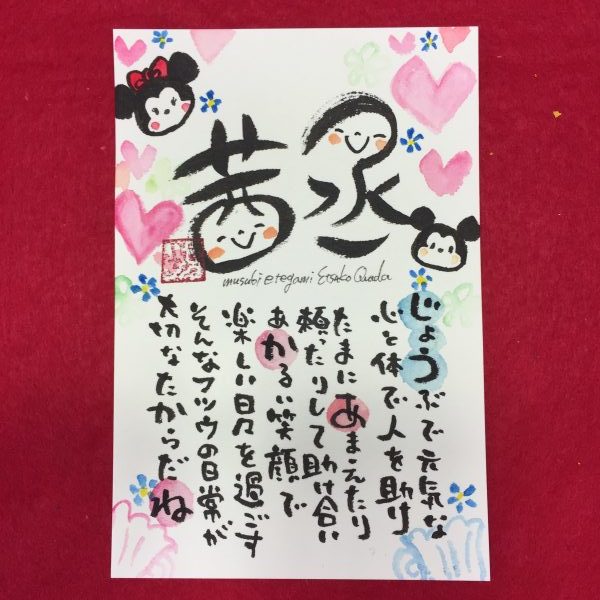 丞
茜
musubi etegami
じょうぶで元気な
心と体で人を助け
たまにあまえたり
頼ったりして助け合い
あかるい笑顔で
楽しい日々を過ごす
そんなフツウの日常が
大切なたからだね